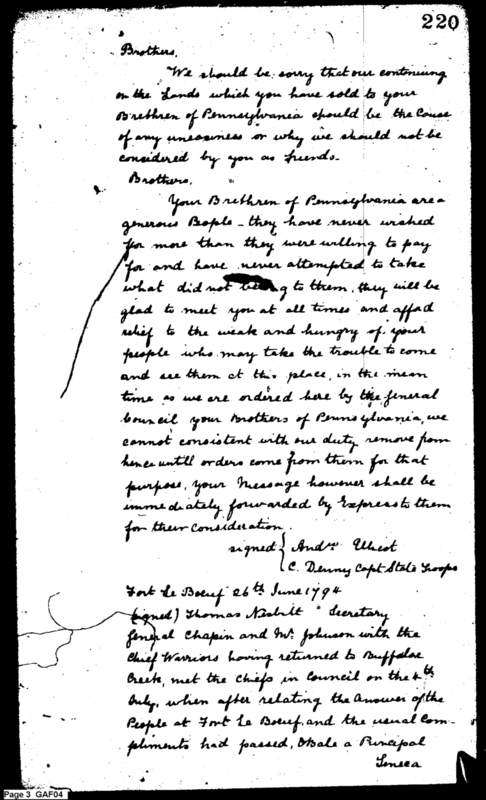 220
Brothers,
We should be sorry that our continuing
on the Lands which you have sold to your
Brethren of Pennsylvania should be the Cause
of any uneasiness or why we should not be
considered by you as friends.
Brothers,
Your Brethren of Pennsylvania are a
generous People - they have never wished
for more than they were willing to pay
for and have never attempted to take
what did not belong to them, they will be
glad to meet you at all times and afford
relief to the weak and hungry of your
people who may take the trouble to come
and see them at this place, in the mean
time as we are ordered here by the general
Council your Brothers of Pennsylvania, we
cannot consistent with our duty remove from
hence untill orders come from them for that
purpose, your Message however shall be
immediately forwarded by Express to them
for their consideration.
signed { Andw Ellicot
C. Denny Capt State Troops
Fort Le Boeuf 26th June 1794
(signed) Thomas Nesbitt Secretary
General Chapin and Mr. Johnson with the
Chief Warriors having returned to Buffaloe
Creek, met the Chiefs in Council on the 4th
July, when after relating the Answer of the
People at Fort Le Boeuf, and the usual Com-
pliments had passed, Obale a Principal
Seneca
Page 3 GAF04